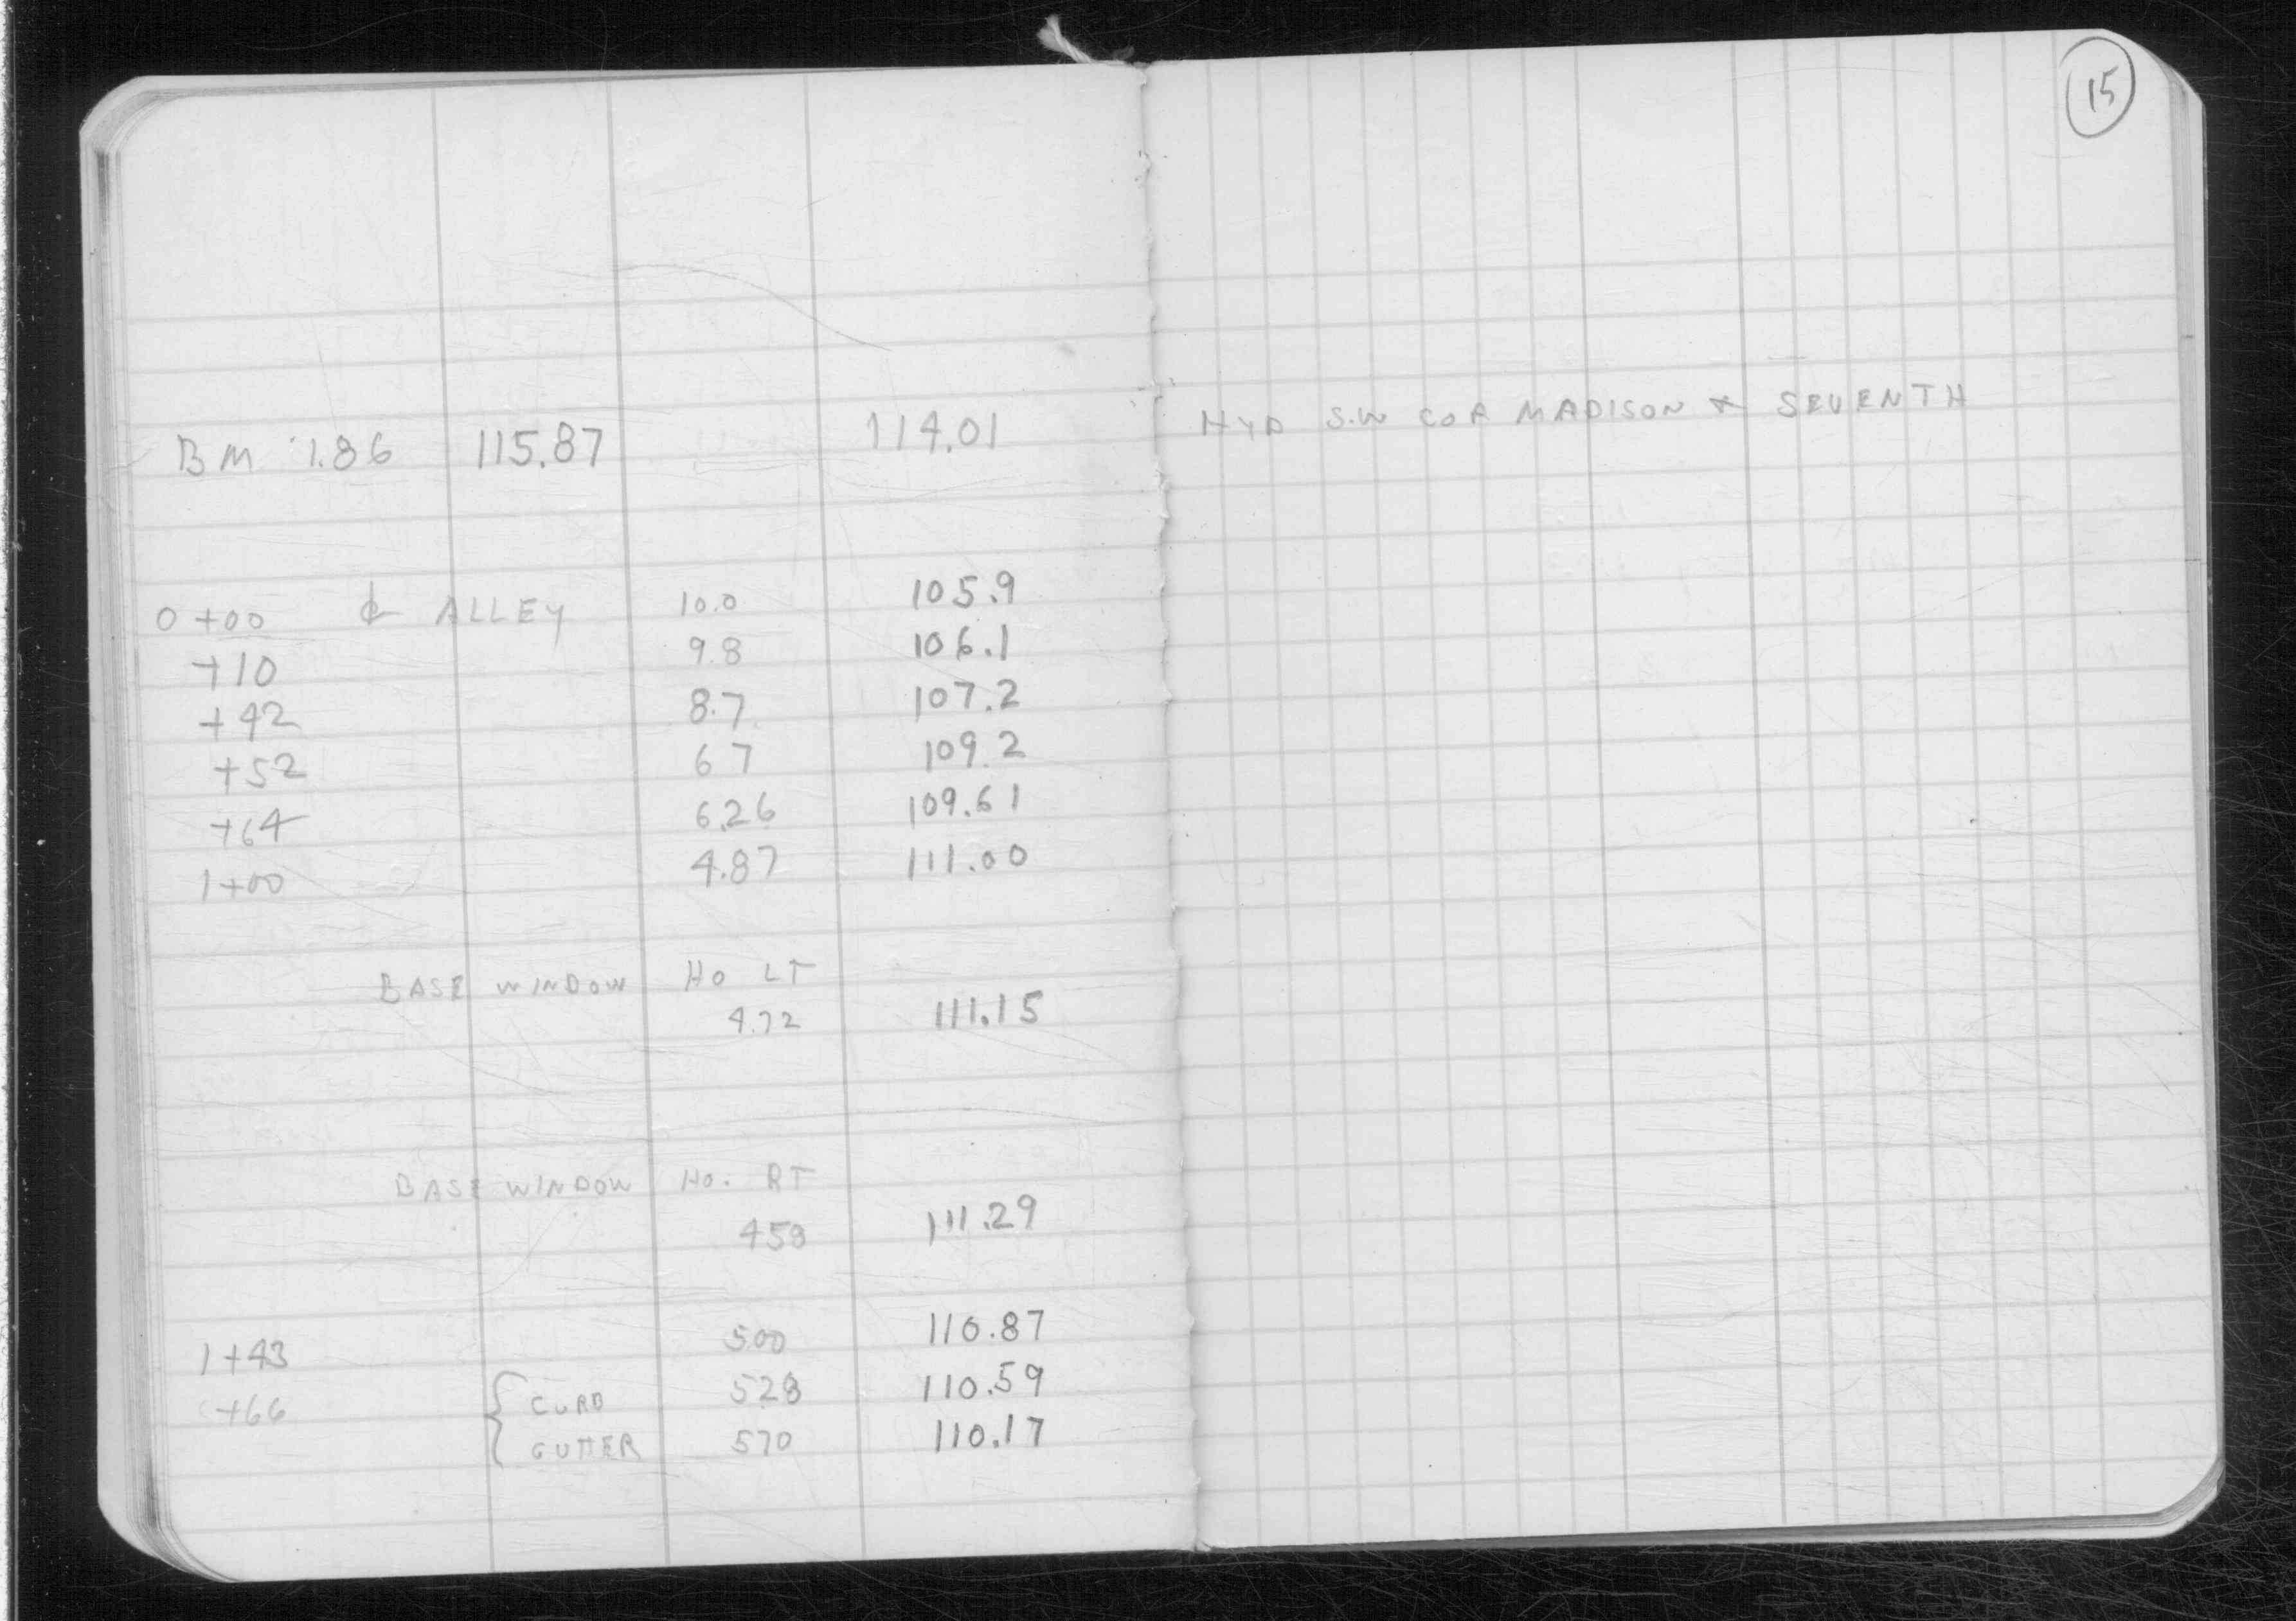 15
BM 1.86 115.87 114.01 HYD S.W COR MADISON & SEVENTH
0+00 ℄ ALLEY 10.0 105.9
+10 9.8 106.1
+42 8.7 107.2
+52 6 7 109.2
+64 6.26 109.61
1+00 4.87 111.00
BASE WINDOW HO LT
4.72 111.15
BASE WINDOW HO. RT
458 111.29
1+43 5.00 110.87
+66 { CURB 528 110.59
GUTTER 570 110.17